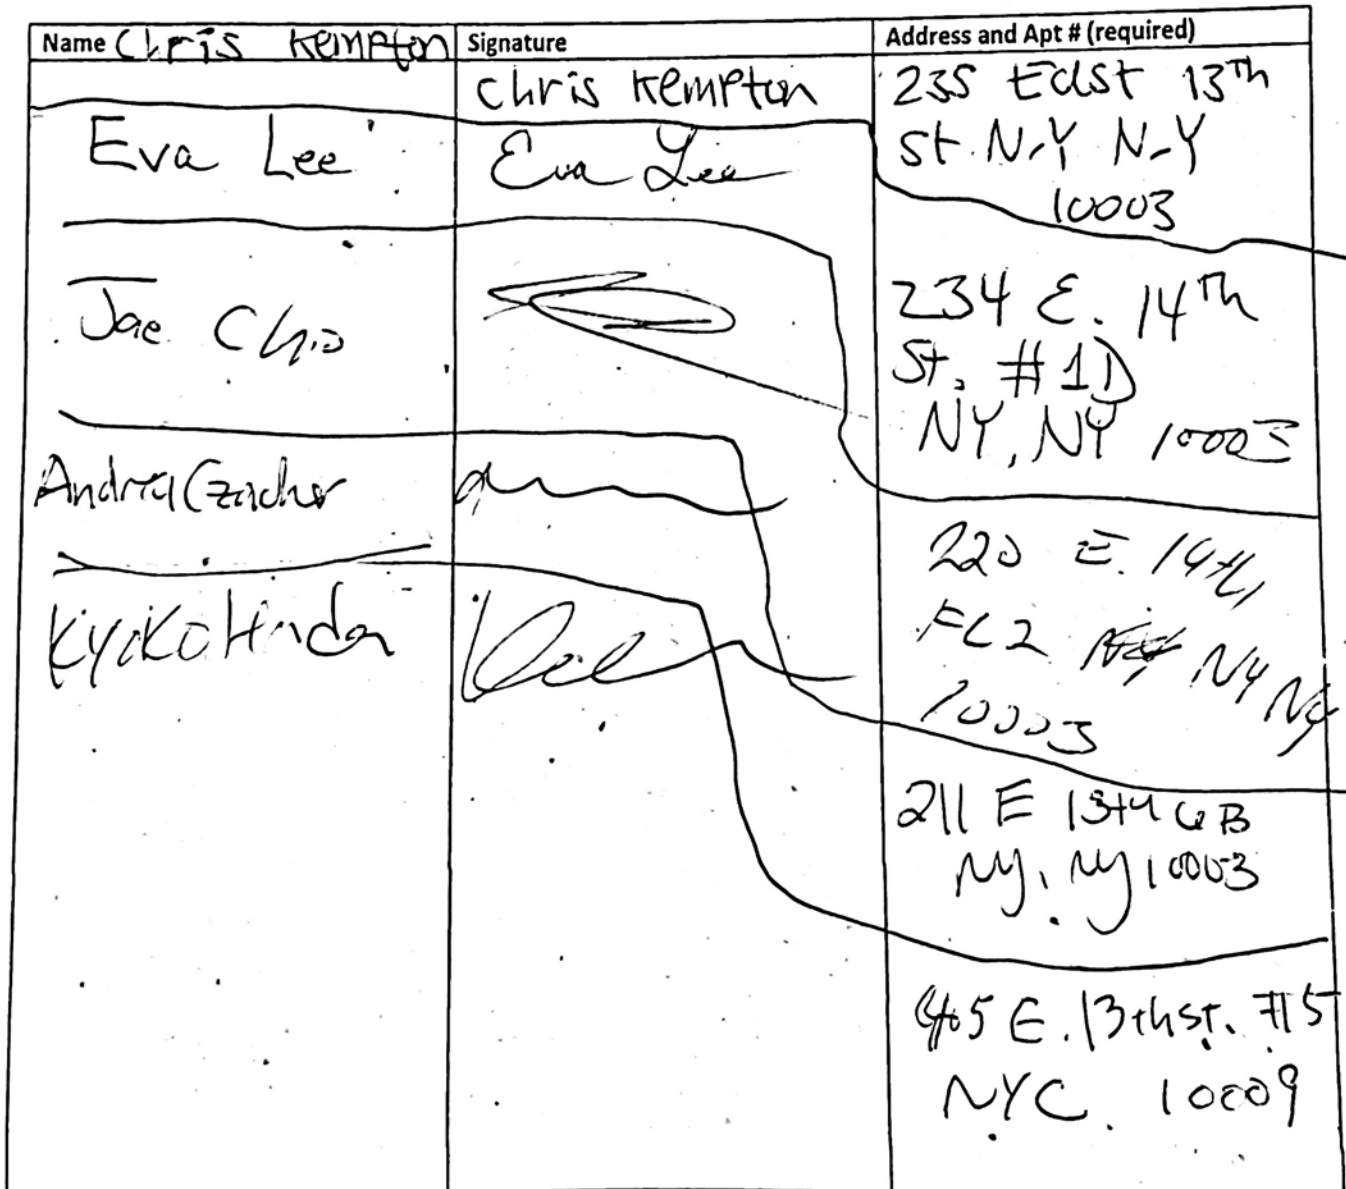 Name Chris Kempton
Signature
Address and Apt # (required)
Chris Kempton
235 East 13th
St. N.Y N.Y
10003
Eva Lee
Eva Lee
234 E. 14th
St. #1D
NY, NY 10003
Jae Cho
220 E. 14th
FL2 NY NY
10003
Andrea Czacher
211 E 13th 6B
NY, NY 10003
Kyoko Hinda
405 E. 13th St. #15
NYC 10009